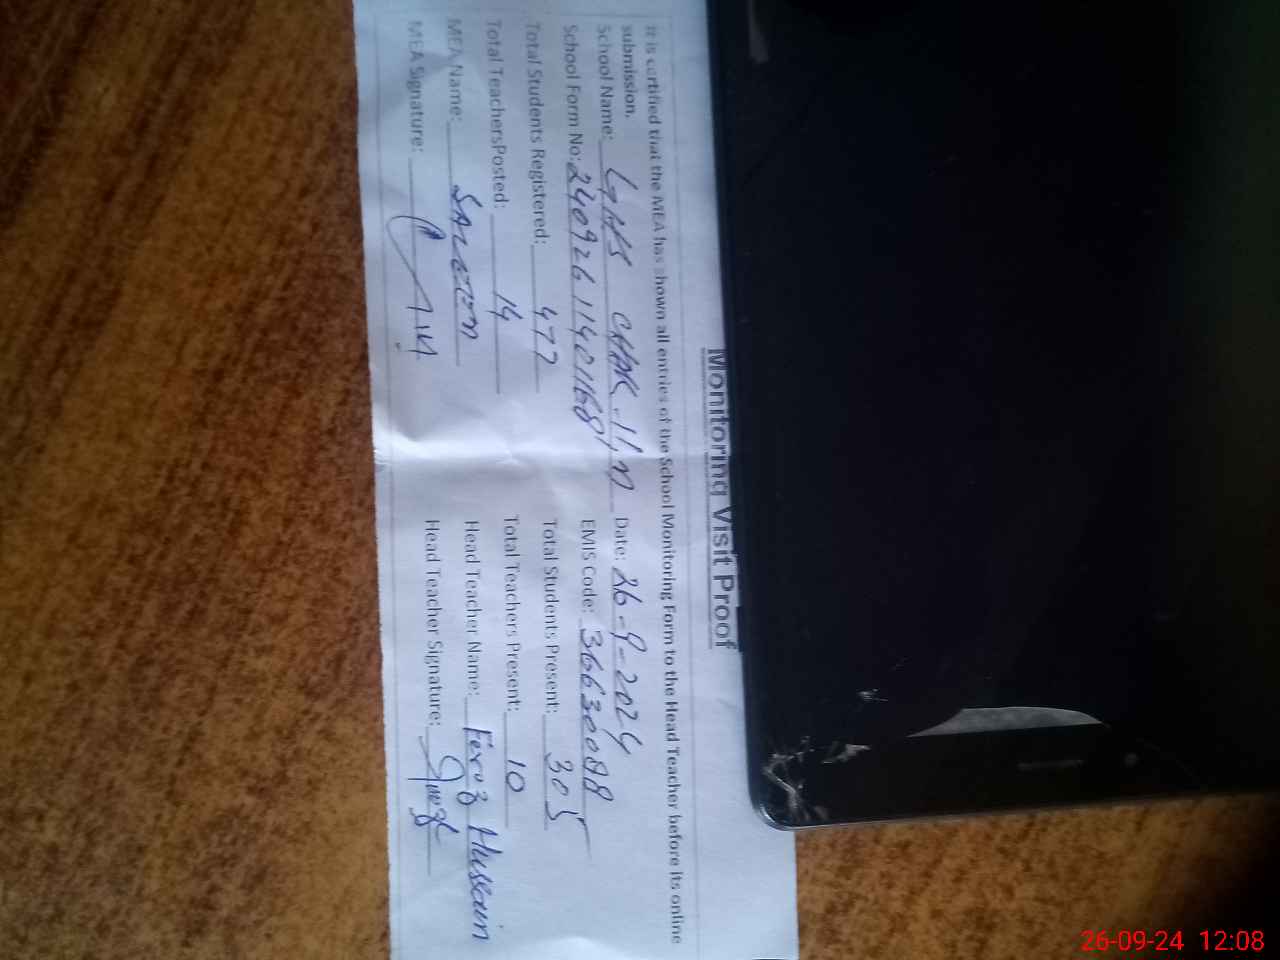 Monitoring Visit Proof
It is certified that the MEA has shown all entries of the School Monitoring Form to the Head Teacher before its online
submission.
School Name: GHS CHAK.11,N Date: 26-9-2024
School Form No: 24092611401168 EMIS Code: 36630088
Total Students Registered: 477 Total Students Present: 305
Total TeachersPosted: 14 Total Teachers Present: 10
MEA Name: SALEEM Head Teacher Name: Feroz Hussain
MEA Signature: Head Teacher Signature:
26-09-24 12:08